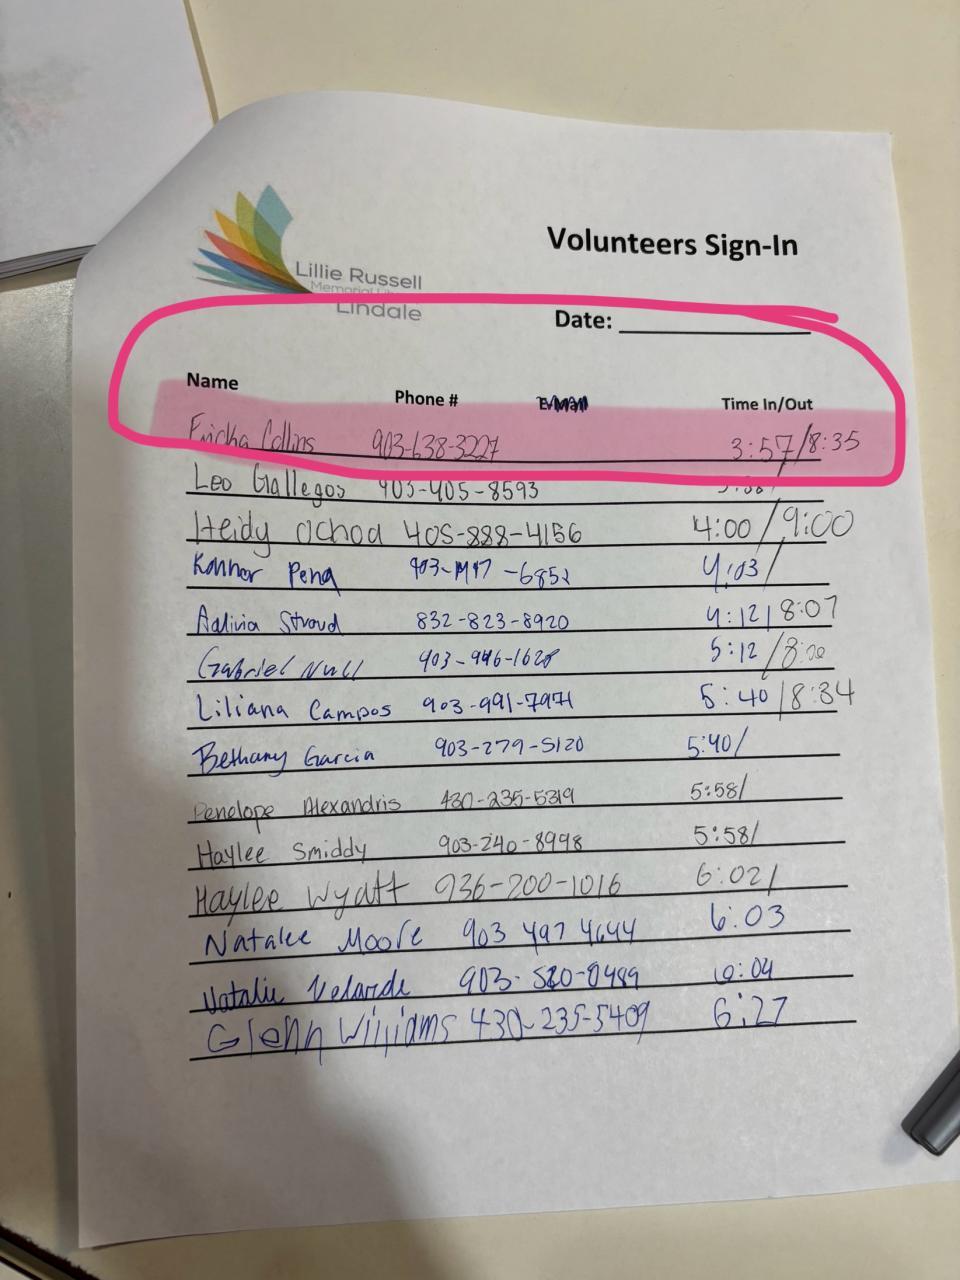 Lillie Russell
Memorial Li
Lindale
Volunteers Sign-In
Date:
Name Phone # E-Mail Time In/Out
Ericka Collins 903-638-3227 3:57/8:35
Leo Gallegos 903-405-8593
Heidy Ochoa 405-888-4156 4:00/9:00
Konnor Pena 4:03/
832-823-8920 4:12/8:07
Gabriel Null 903-946-1628 5:12/8:00
Liliana Campos 903-991-7971 5:40/8:34
Bethany Garcia 903-279-5120 5:40/
Penelope Alexandris 430-235-5319 5:58/
Haylee Smiddy 903-240-8998 5:58/
Haylee Wyatt 936-200-1016 6:02/
Natalee Moore 903 497 4644 6:03
Natalie Velarde 6:04
Glenn Williams 430-235-5409 6:27